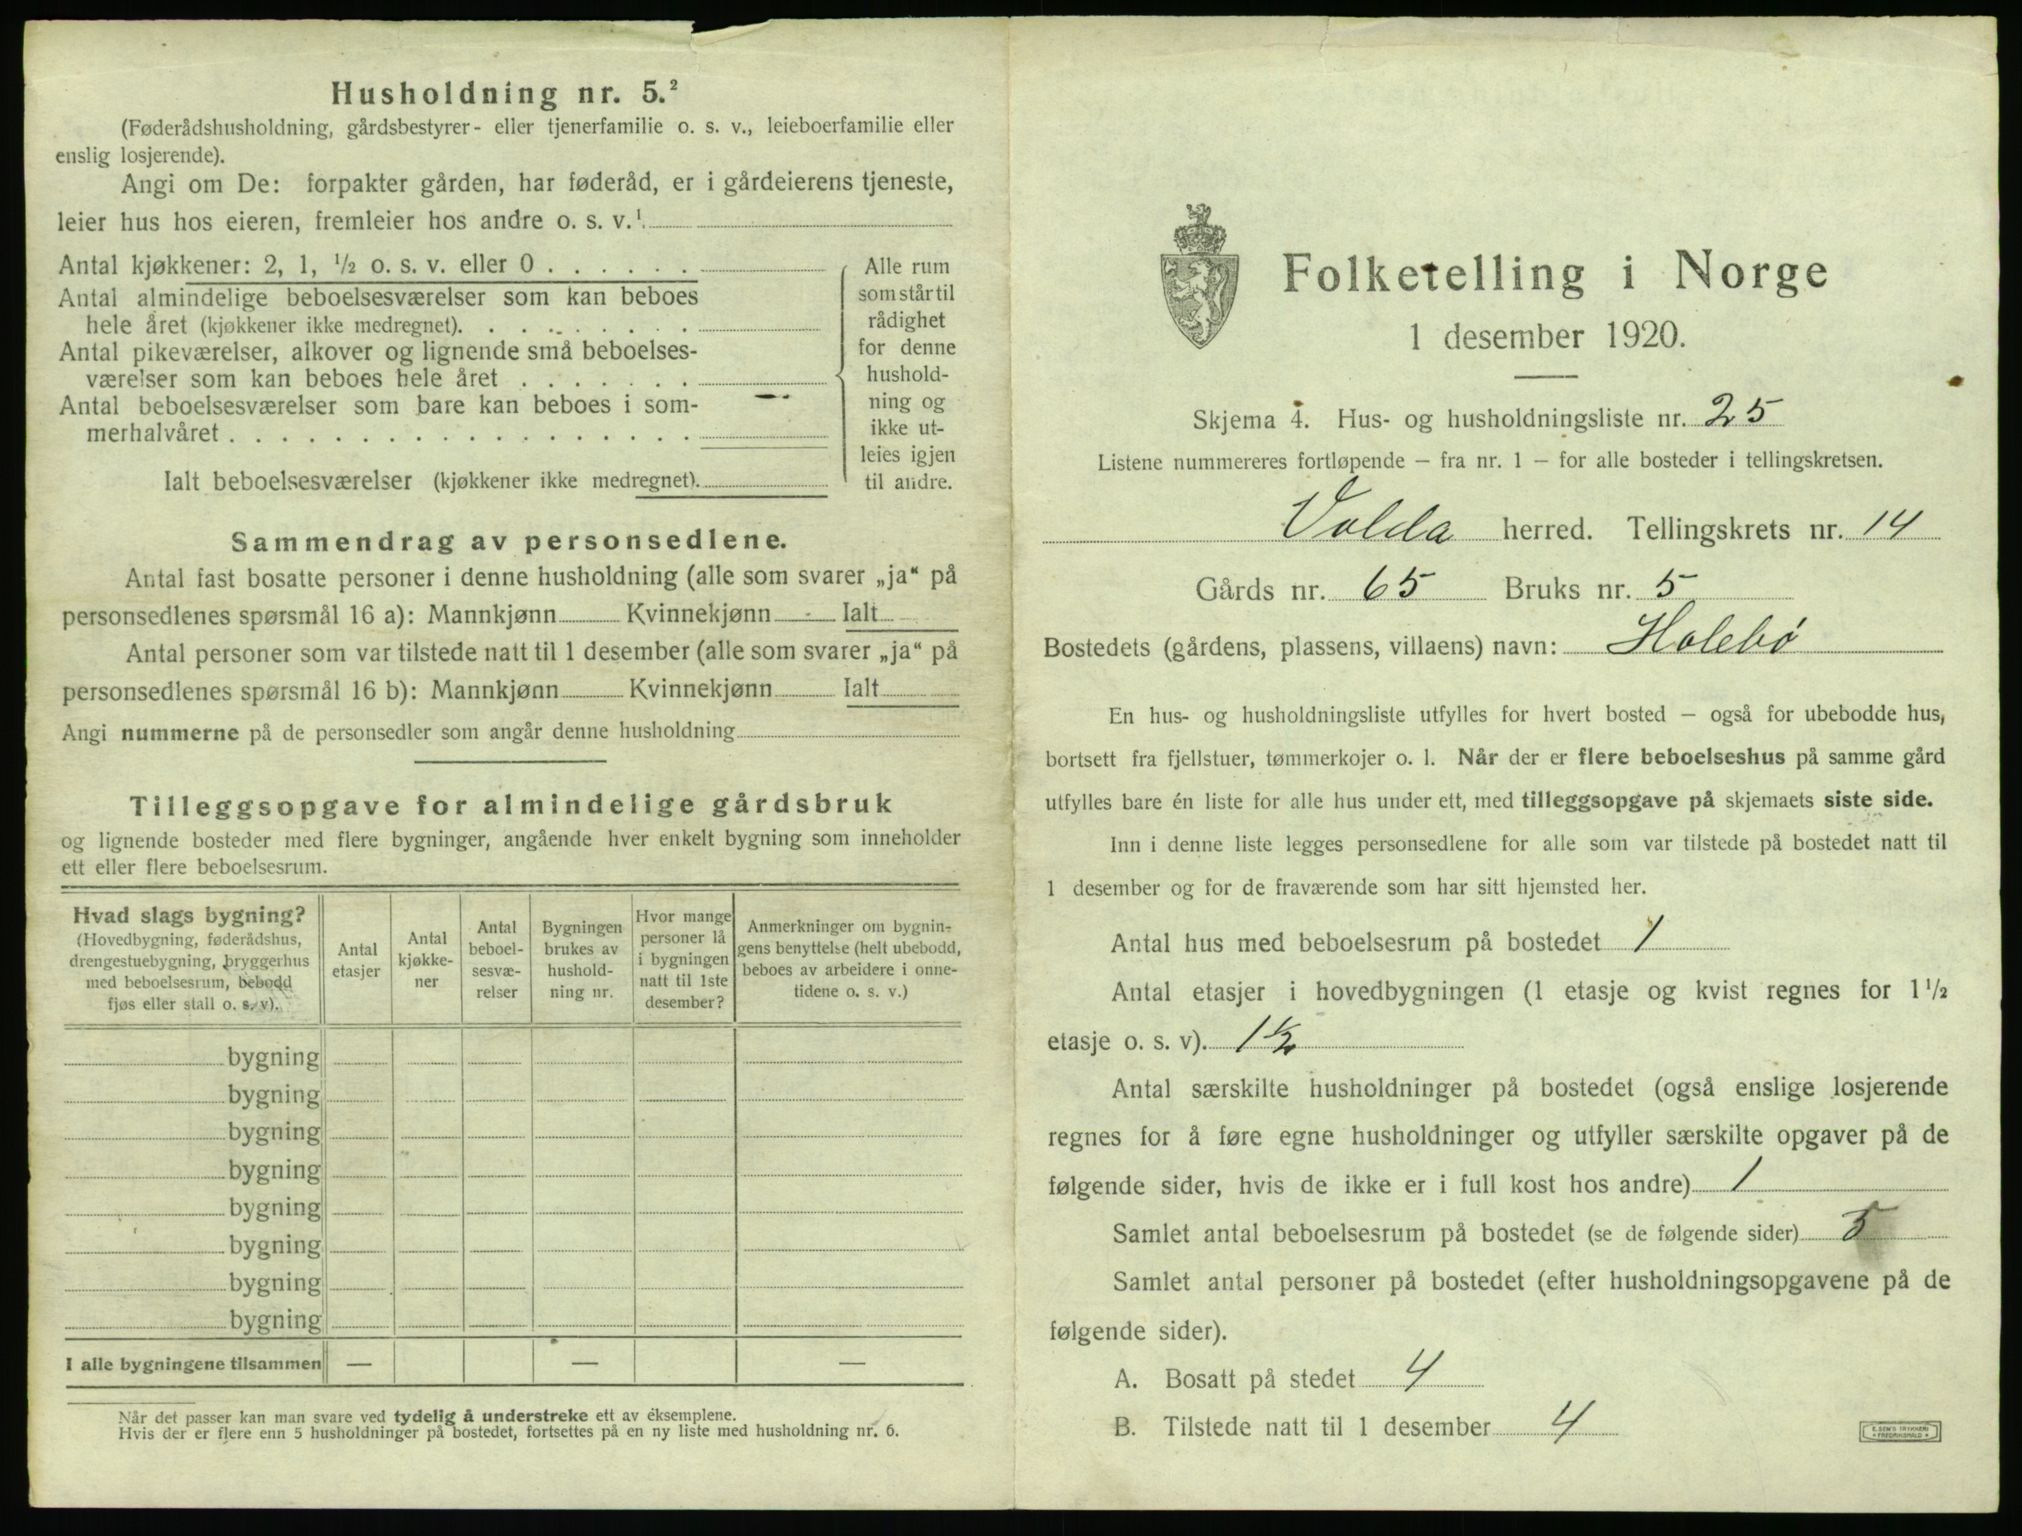 Husholdning nr. 5.²
(Føderådshusholdning, gårdsbestyrer- eller tjenerfamilie o. s. v., leieboerfamilie eller
enslig losjerende).
Angi om De: forpakter gården, har føderåd, er i gårdeierens tjeneste,
leier hus hos eieren, fremleier hos andre o. s. v.¹
Antal kjøkkener: 2, 1, ½ o. s. v. eller 0 . . . . . .
Antal almindelige beboelsesværelser som kan beboes
hele året (kjøkkener ikke medregnet). . . . . . . . .
Antal pikeværelser, alkover og lignende små beboelses-
værelser som kan beboes hele året . . . . . . .
Antal beboelsesværelser som bare kan beboes i som-
merhalvåret . . . . . . . . . . . . . . . . . .
Ialt beboelsesværelser (kjøkkener ikke medregnet).
Alle rum
som står til
rådighet
for denne
hushold-
ning og
ikke ut-
leies igjen
til andre.
Sammendrag av personsedlene.
Antal fast bosatte personer i denne husholdning (alle som svarer „ja“ på
personsedlenes spørsmål 16 a): Mannkjønn Kvinnekjønn Ialt
Antal personer som var tilstede natt til 1 desember (alle som svarer „ja“ på
personsedlenes spørsmål 16 b): Mannkjønn Kvinnekjønn Ialt
Angi nummerne på de personsedler som angår denne husholdning
Tilleggsopgave for almindelige gårdsbruk
og lignende bosteder med flere bygninger, angående hver enkelt bygning som inneholder
ett eller flere beboelsesrum.
Hvad slags bygning?
(Hovedbygning, føderådshus,
drengestuebygning, bryggerhus
med beboelsesrum, bebodd
fjøs eller stall o. s. v).
Antal
etasjer
Antal
kjøkke-
ner
Antal
beboel-
sesvæ-
relser
Bygningen
brukes av
hushold-
ning nr.
Hvor mange
personer lå
i bygningen
natt til 1ste
desember?
Anmerkninger om bygnin-
gens benyttelse (helt ubebodd,
beboes av arbeidere i onne-
tidene o. s. v.)
bygning
bygning
bygning
bygning
bygning
bygning
bygning
bygning
I alle bygningene tilsammen — — —
Når det passer kan man svare ved tydelig å understreke ett av eksemplene.
Hvis der er flere enn 5 husholdninger på bostedet, fortsettes på en ny liste med husholdning nr. 6.
Folketelling i Norge
1 desember 1920.
Skjema 4. Hus- og husholdningsliste nr. 25
Listene nummereres fortløpende — fra nr. 1 — for alle bosteder i tellingskretsen.
Volda herred. Tellingskrets nr. 14
Gårds nr. 65 Bruks nr. 5
Bostedets (gårdens, plassens, villaens) navn: Holebø
En hus- og husholdningsliste utfylles for hvert bosted — også for ubebodde hus,
bortsett fra fjellstuer, tømmerkojer o. l. Når der er flere beboelseshus på samme gård
utfylles bare én liste for alle hus under ett, med tilleggsopgave på skjemaets siste side.
Inn i denne liste legges personsedlene for alle som var tilstede på bostedet natt til
1 desember og for de fraværende som har sitt hjemsted her.
Antal hus med beboelsesrum på bostedet 1
Antal etasjer i hovedbygningen (1 etasje og kvist regnes for 1½
etasje o. s. v). 1½
Antal særskilte husholdninger på bostedet (også enslige losjerende
regnes for å føre egne husholdninger og utfyller særskilte opgaver på de
følgende sider, hvis de ikke er i full kost hos andre) 1
Samlet antal beboelsesrum på bostedet (se de følgende sider) 5
Samlet antal personer på bostedet (efter husholdningsopgavene på de
følgende sider).
A. Bosatt på stedet 4
B. Tilstede natt til 1 desember 4